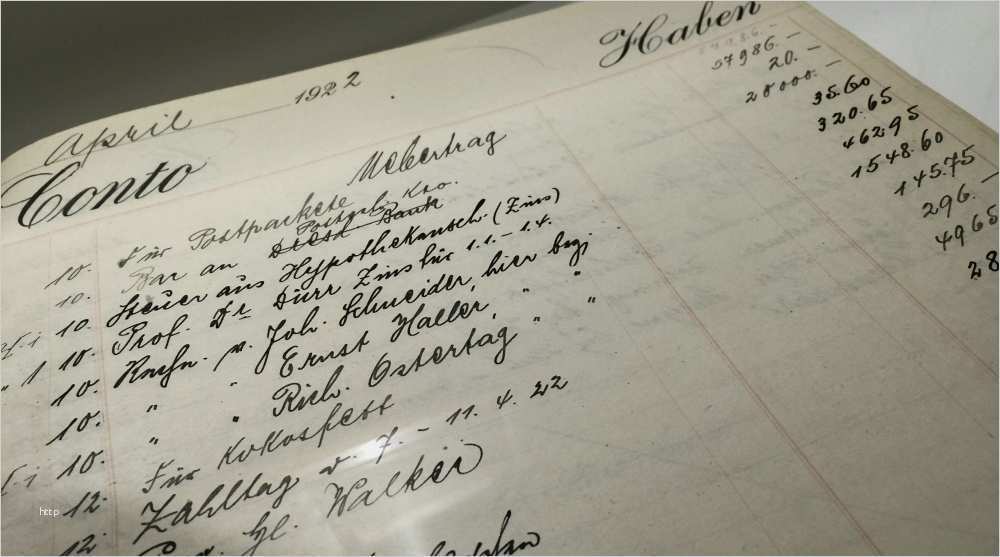 April 1922
Conto Haben
Uebertrag 57986.—
10. Für Postpackete 20.—
Postgeb. Kto.
10. Bar an Bank 20000.—
10. Steuer aus (Zins) 35.60
10. Prof. Dr. Dürr Zins für 1.1.-1.4. 320.65
10. v. Joh. Schneider, hier 462.95
10. " " Ernst Haller, " " 1548.60
10. " " Rich. Ostertag " " 145.75
12. Für Kokosfett 296.—
12. Zahltag v. 7.- 11. 4. 22 4965
Walker 28
http